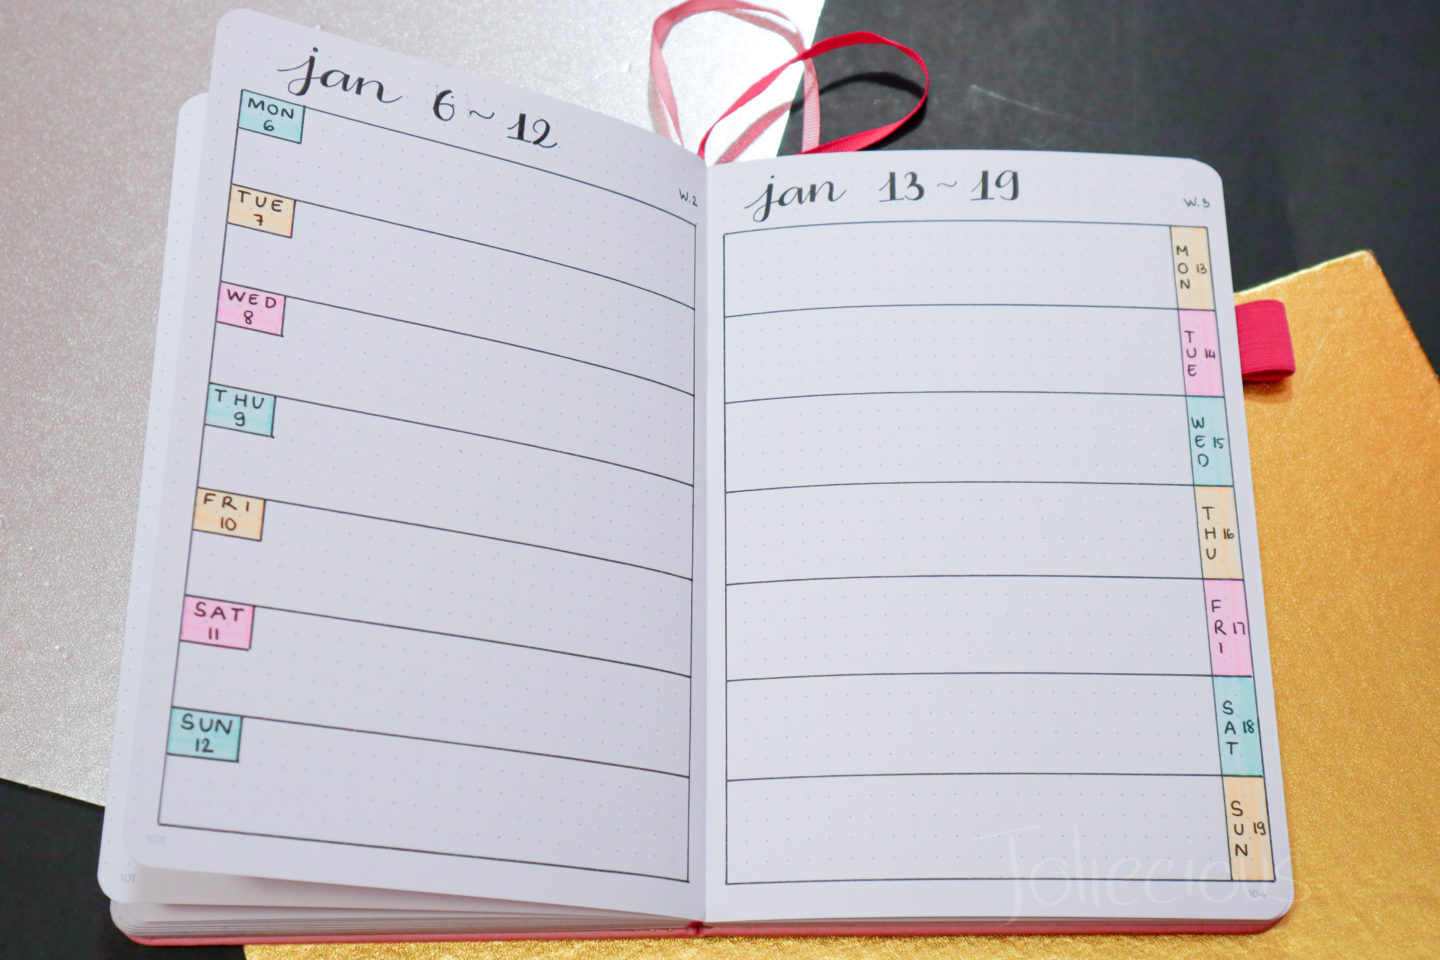 jan 6 ~ 12
W.2
MON
6
TUE
7
WED
8
THU
9
FRI
10
SAT
11
SUN
12
103
101
jan 13 ~ 19
W.3
MON 13
TUE 14
WED 15
THU 16
FRI 17
SAT 18
SUN 19
104
Joliecious